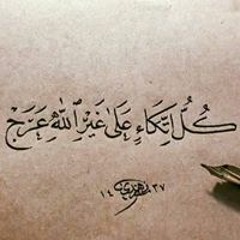 كُلُّ اتِّكَاءٍ عَلَىٰ غَيْرِ اللهِ عَرَجْ
١٤٣٧